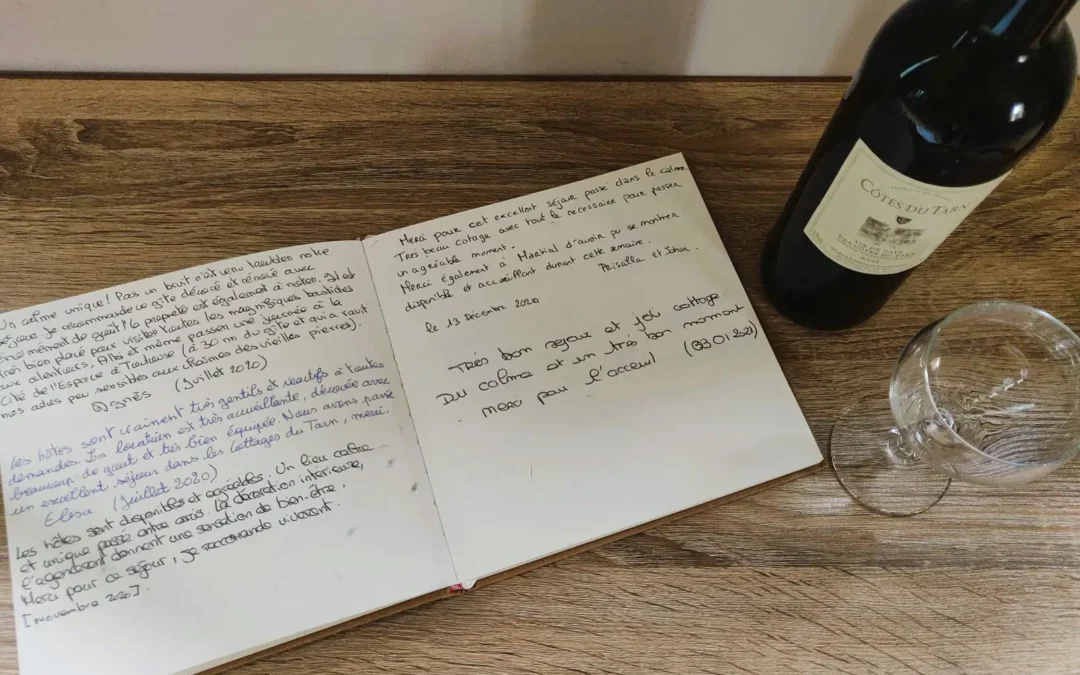 Un calme unique! Pas un bruit n'est venu troubler notre
séjour. Je recommande ce gîte décoré et rénové avec
énormément de goût! la propreté est également à noter. Il est
très bien placé pour visiter toutes les magnifiques bastides
aux alentours, Albi et même passer une journée à la
Cité de l'Espace à Toulouse (à 30 mn du gîte et qui a ravit
nos ados peu sensibles aux charmes des vieilles pierres).
Agnès (Juillet 2020)
Les hôtes sont vraiment très gentils et réactifs à toutes
demandes. La location est très accueillante, décorée avec
beaucoup de goût et très bien équipée. Nous avons passé
un excellent séjour dans les Cottages du Tarn, merci.
Elisa (Juillet 2020)
Les hôtes sont disponibles et agréables. Un lieu calme
et unique passé entre amis. La décoration intérieure,
l'agencement donnent une sensation de bien-être.
Merci pour ce séjour, je recommande vivement.
[novembre 2020]
Merci pour cet excellent séjour passé dans le calme.
Tres beau cotage avec tout le necessaire pour passer
un agréable moment.
Merci également à Martial d'avoir pu se montrer
disponible et accueillant durant cette semaine.
Priscilla et
le 13 Décembre 2020
Très bon sejour et joli cottage.
Du calme et un très bon moment
merci pour l'acceuil
CÔTES DU TARN
VIN DE PAYS
DES CÔTES DU TARN